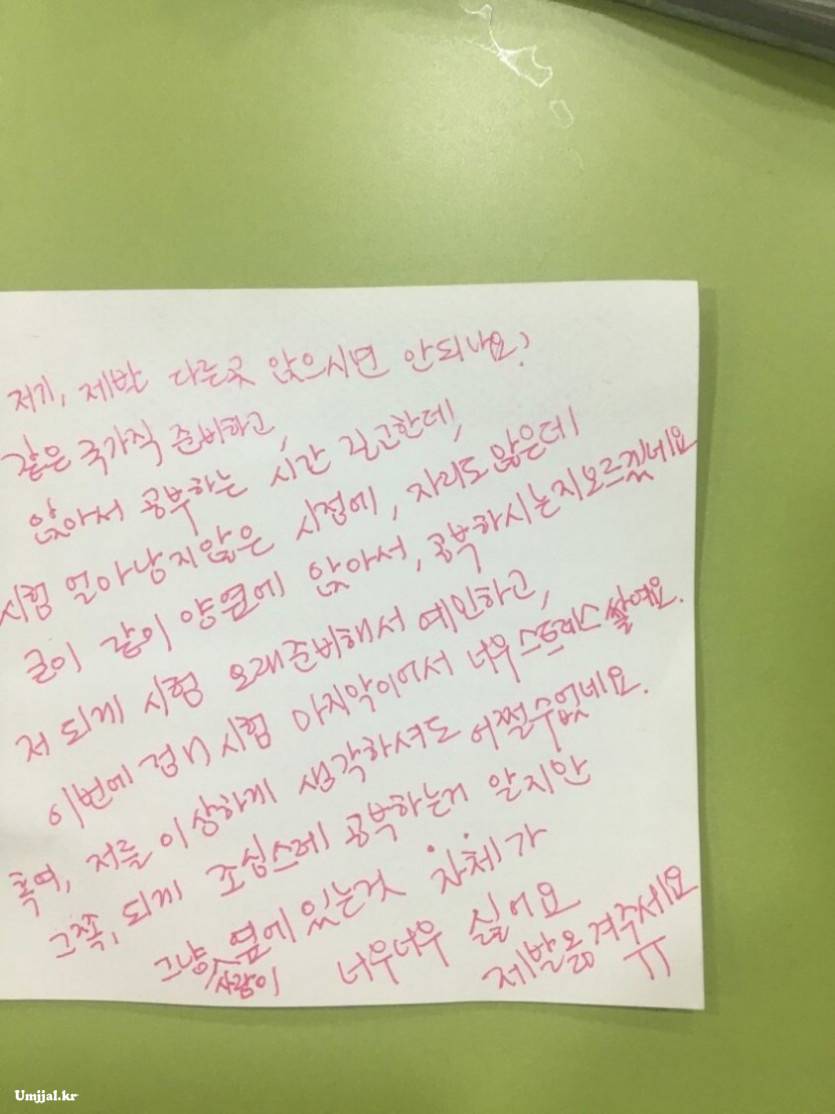 저기, 제발 다른곳 앉으시면 안되나요?
같은 국가직 준비하고,
앉아서 공부하는 시간 길고한데,
시험 얼마남지않은 시점에, 자리도 많은데
굳이 같이 양옆에 앉아서, 공부하시는지모르겠네요
저 되게 시험 오래준비해서 예민하고,
이번에 시험 마지막이어서 너무 스트레스 쌓여요.
혹여, 저를 이상하게 생각하셔도 어쩔수없네요.
그쪽, 되게 조심스레 공부하는거 알지만
그냥 사람이 옆에 있는것 자체가
너무너무 싫어요
제발옮겨주세요
ㅠ
Umjjal.kr